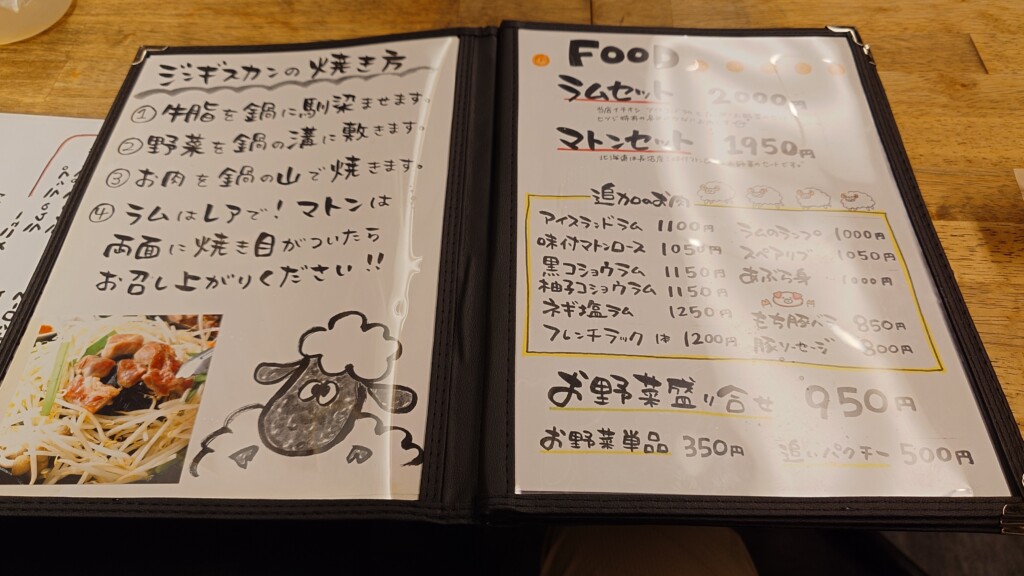 ジンギスカンの焼き方
① 牛脂を鍋に馴染ませます。
② 野菜を鍋の溝に敷きます。
③ お肉を鍋の山で焼きます。
④ ラムはレアで！マトンは
両面に焼き目がついたら
お召し上がりください！！
FOOD
ラムセット 2000円
マトンセット 1950円
追加のお肉
アイスランドラム 1100円
味付マトンロース 1050円
黒コショウラム 1150円
柚子コショウラム 1150円
ネギ塩ラム 1250円
フレンチラック 1本 1200円
ラムのランプ 1000円
スペアリブ 1050円
あぶら身 1000円
もち豚バラ 850円
豚ソーセージ 800円
お野菜盛り合せ 950円
お野菜単品 350円
追いパクチー 500円